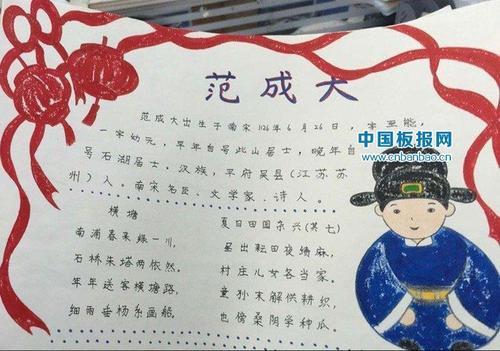 范成大
范成大出生于南宋1126年6月26日,字至能,
一字幼元,早年自号此山居士,晚年自
号石湖居士,汉族,平府吴县(江苏苏
州)人。南宋名臣、文学家、诗人。
横塘
南浦春来绿一川,
石桥朱塔两依然。
年年送客横塘路,
细雨垂杨系画船。
夏日田园杂兴(其七)
昼出耘田夜绩麻,
村庄儿女各当家。
童孙未解供耕织,
也傍桑阴学种瓜。
中国板报网
www.cnbanbao.cn